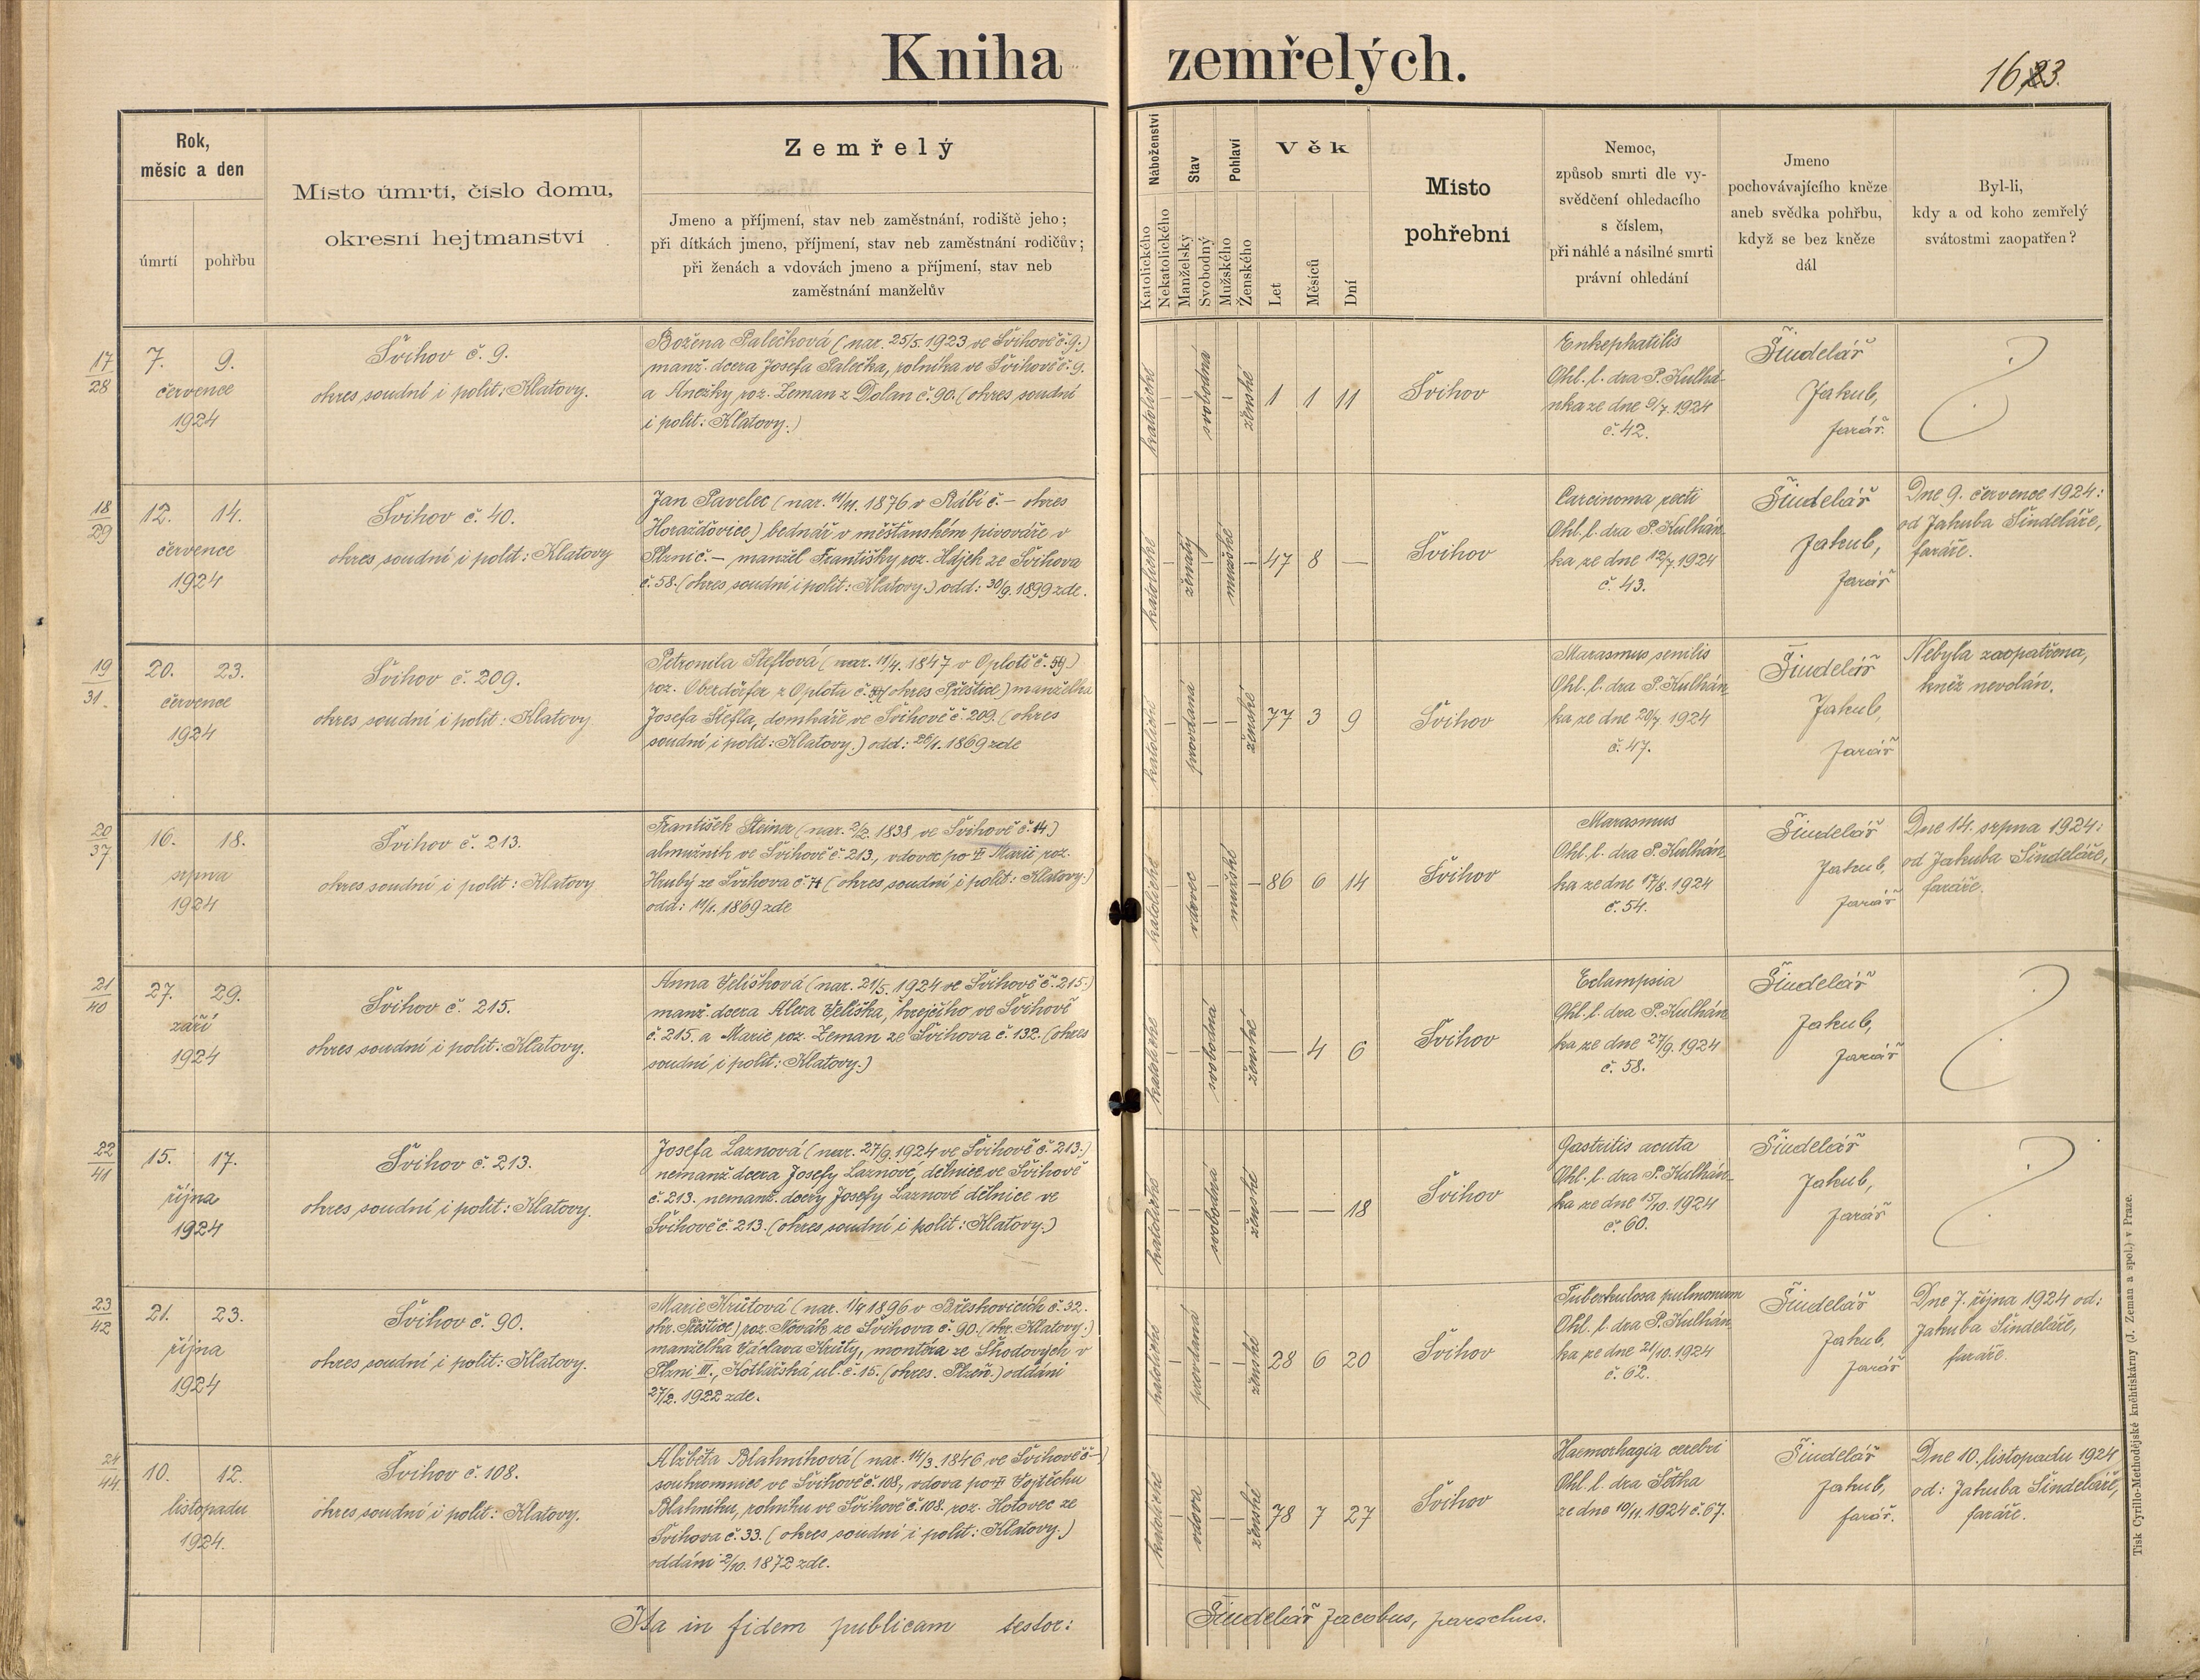 Kniha zemřelých.
163.
Rok,
měsíc a den
úmrtí
pohřbu
Místo úmrtí, číslo domu,
okresní hejtmanství
Zemřelý
Jmeno a příjmení, stav neb zaměstnání, rodiště jeho;
při dítkách jmeno, příjmení, stav neb zaměstnání rodičův;
při ženách a vdovách jmeno a příjmení, stav neb
zaměstnání manželův
Náboženství
Katolického
Nekatolického
Stav
Manželský
Svobodný
Pohlaví
Mužského
Ženského
Věk
Let
Měsíců
Dní
Místo
pohřební
Nemoc,
způsob smrti dle vy-
svědčení ohledacího
s číslem,
při náhlé a násilné smrti
právní ohledání
Jmeno
pochovávajícího kněze
aneb svědka pohřbu,
když se bez kněze
dál
Byl-li,
kdy a od koho zemřelý
svátostmi zaopatřen?
17
28
7. 9.
července
1924
Švihov č. 9.
okres soudní i polit: Klatovy.
Božena Palečková (nar. 25/5. 1923 ve Švihově č. 9.)
manž. dcera Josefa Palečka, rolníka ve Švihově č. 9.
a Anežky roz. Zeman z Dolan č. 90. (okres soudní
i polit: Klatovy.)
katolické
—
—
svobodná
—
ženské
1 1 11
Švihov
Enkephatilis
Ohl. l. dra P. Kulhá-
nka ze dne 9/7. 1924
č. 42.
Šindelář
Jakub,
farář.
18
29
12. 14.
července
1924
Švihov č. 40.
okres soudní i polit: Klatovy
Jan Pavelec (nar. 11/11. 1876 v Rábí č. — okres
Horažďovice) bednář v měšťanském pivováře v
Plzni č. — manžel Františky roz. Hájek ze Švihova
č. 58. (okres soudní i polit: Klatovy.) odd: 30/9. 1899 zde.
katolické
—
ženatý
—
mužské
—
47 8 —
Švihov
Carcinoma recti
Ohl. l. dra P. Kulhán-
ka ze dne 12/7. 1924
č. 43.
Šindelář
Jakub,
farář
Dne 9. července 1924:
od Jakuba Šindeláře,
faráře.
19
31.
20. 23.
července
1924
Švihov č. 209.
okres soudní i polit: Klatovy
Petronila Šteflová (nar. 11/4. 1847 v Oplotě č. 59.)
roz. Oberdörfer z Oplota č. (okres Přeštice) manželka
Josefa Štefla, domkáře ve Švihově č. 209. (okres
soudní i polit: Klatovy.) odd: 26/1. 1869 zde
katolické
—
provdaná
—
—
ženské
77 3 9
Švihov
Marasmus senilis
Ohl. l. dra P. Kulhán-
ka ze dne 20/7 1924
č. 47.
Šindelář
Jakub,
farář
Nebyla zaopatřena,
kněz nevolán.
20
37
16. 18.
srpna
1924
Švihov č. 213.
okres soudní i polit: Klatovy
František Steiner (nar. 2/2. 1838 ve Švihově č. 14.)
almužník ve Švihově č. 213., vdovec po † Marii roz.
Hrubý ze Švihova č. 74 (okres soudní i polit: Klatovy.)
odd: 11/1. 1869 zde
katolické
—
vdovec
—
mužské
—
86 6 14
Švihov
Marasmus
Ohl. l. dra P. Kulhán-
ka ze dne 17/8. 1924
č. 54.
Šindelář
Jakub,
farář
Dne 14. srpna 1924:
od Jakuba Šindeláře,
faráře.
21
40
27. 29.
září
1924
Švihov č. 215.
okres soudní i polit: Klatovy.
Anna Velíšková (nar. 21/5. 1924 ve Švihově č. 215.)
manž. dcera Aloisa Velíška, krejčího ve Švihově
č. 215. a Marie roz. Zeman ze Švihova č. 132. (okres
soudní i polit: Klatovy.)
katolické
—
—
svobodná
—
ženské
— 4 6
Švihov
Eclampsia
Ohl. l. dra P. Kulhán-
ka ze dne 27/9. 1924
č. 58.
Šindelář
Jakub,
farář
22
41
15. 17.
října
1924
Švihov č. 213.
okres soudní i polit: Klatovy.
Josefa Laznová (nar. 27/9. 1924 ve Švihově č. 213.)
nemanž. dcera Josefy Laznové, dělnice ve Švihově
č. 213. nemanž. dcery Josefy Laznové dělnice ve
Švihově č. 213. (okres soudní i polit: Klatovy.)
katolické
—
—
svobodná
—
ženské
— — 18
Švihov
Gastritis acuta
Ohl. l. dra P. Kulhán-
ka ze dne 15/10. 1924
č. 60.
Šindelář
Jakub,
farář
23
42
21. 23.
října
1924
Švihov č. 90.
okres soudní i polit: Klatovy.
Marie Krůtová (nar. 1/4 1896 v Břeskovicích č. 32.
okr. Přeštice) roz. Novák ze Švihova č. 90. (okr. Klatovy.)
manželka Václava Krůty, montéra ze Škodových v
Plzni III., Kotlářská ul. č. 15. (okres. Plzeň.) oddáni
27/2. 1922 zde.
katolické
—
provdaná
—
—
ženské
28 6 20
Švihov
Tuberkulosa pulmonum
Ohl. l. dra P. Kulhán-
ka ze dne 21/10. 1924
č. 62.
Šindelář
Jakub,
farář
Dne 7. října 1924 od:
Jakuba Šindeláře,
faráře.
24
44
10. 12.
listopadu
1924.
Švihov č. 108.
okres soudní i polit: Klatovy.
Alžběta Blahníková (nar. 14/3. 1846 ve Švihově č —)
soukromnice ve Švihově č. 108, vdova po † Vojtěchu
Blahníku, rolníku ve Švihově č. 108. roz. Hotovec ze
Švihova č. 33. (okres soudní i polit: Klatovy.)
oddáni 2/10. 1872 zde.
katolické
—
vdova
—
—
ženské
78 7 27
Švihov
Haemorhagia cerebri
Ohl. l. dra Šotka
ze dne 10/11. 1924 č. 67.
Šindelář
Jakub,
farář.
Dne 10. listopadu 1924
od: Jakuba Šindeláře,
faráře.
Ita in fidem publicam testor: Šindelář Jacobus, parochus.
Tisk Cyrillo-Methodějské knihtiskárny (J. Zeman a spol.) v Praze.